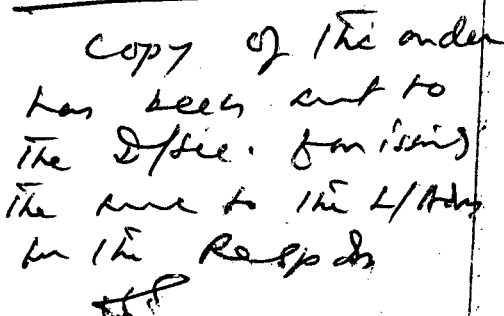 Copy of the order
has been sent to
the D/Sec. for issuing
the same to the L/Adv
for the Respdts